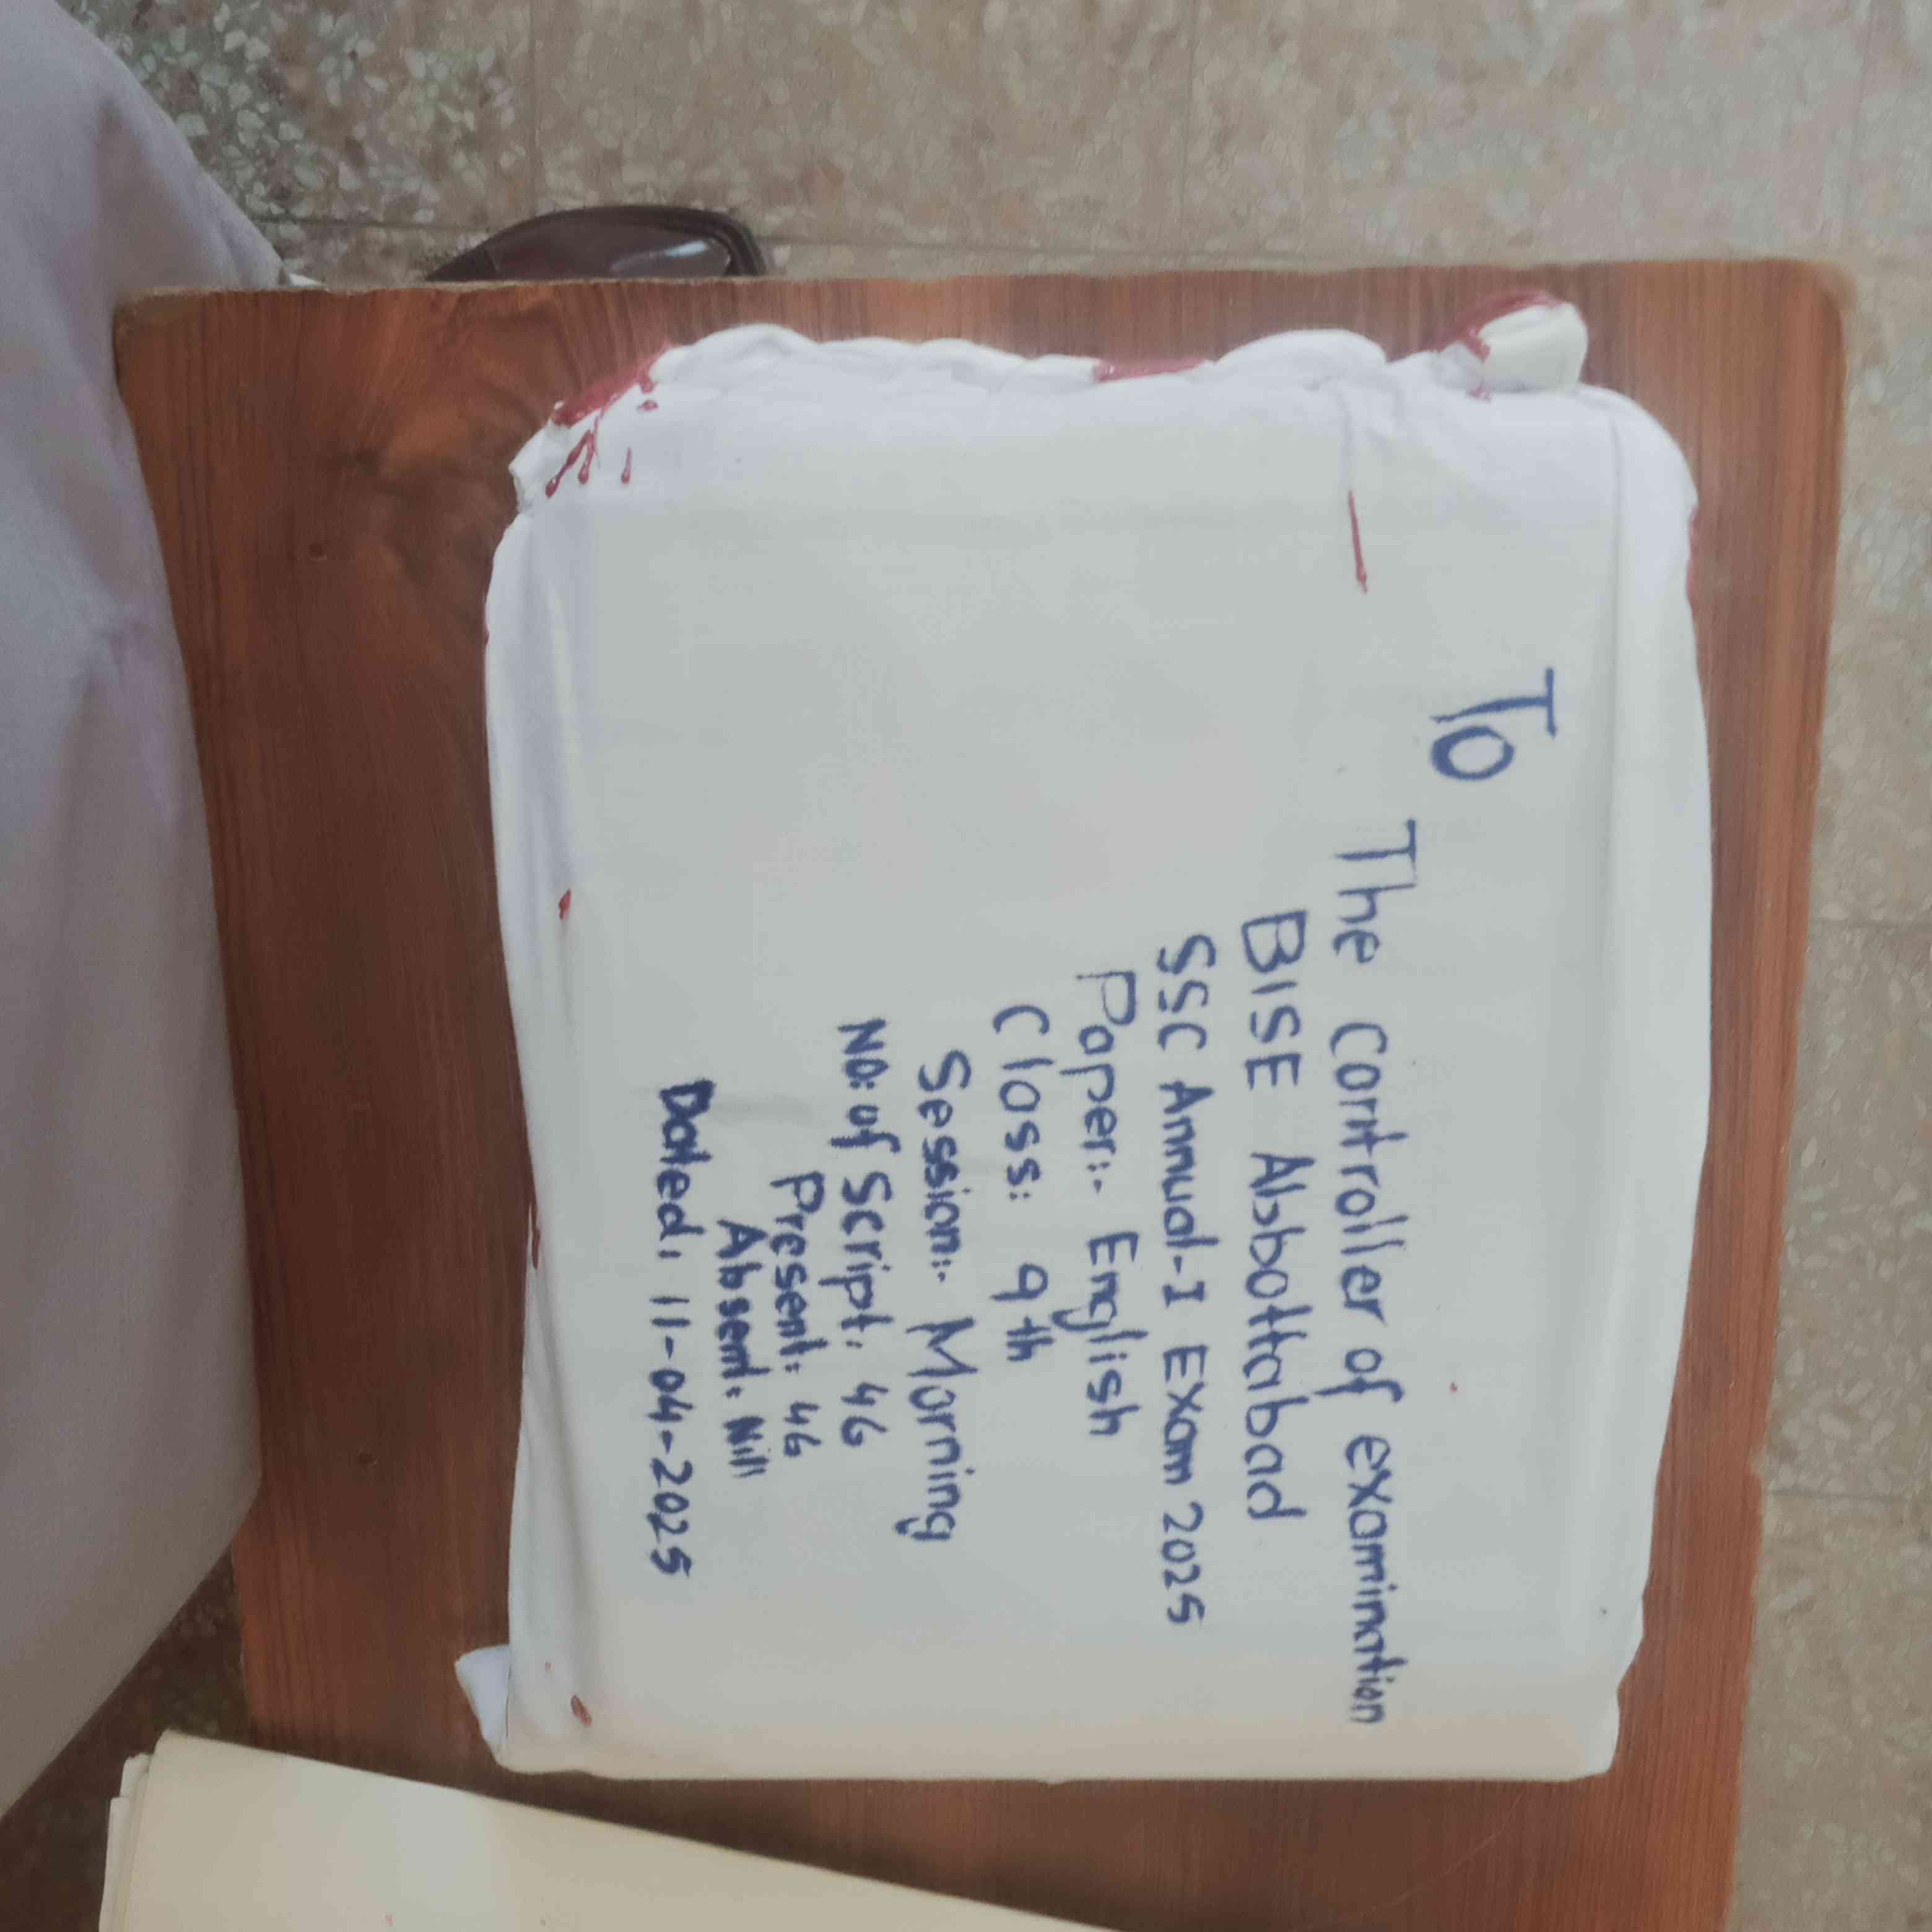 To
The Controller of examination
BISE Abbottabad
SSC Annual-I Exam 2025
Paper:- English
Class: 9th
Session:- Morning
No: of Script: 46
Present: 46
Absent: Nill
Dated: 11-04-2025